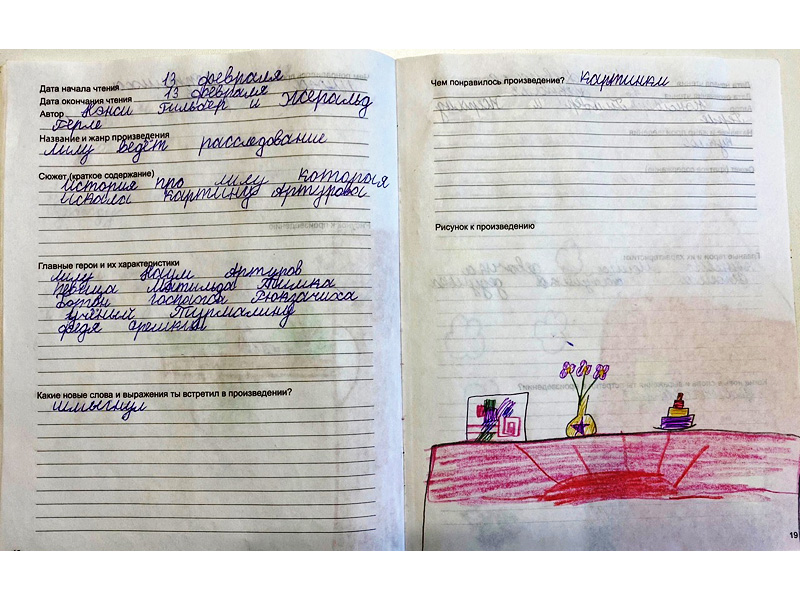 Дата начала чтения 13 февраля
Дата окончания чтения 13 февраля
Автор Нэнси Гильбер и Жеральд
Герле
Название и жанр произведения
Лилу ведёт расследование
Сюжет (краткое содержание)
История про лилу которая
искала картину Артурова
Главные герои и их характеристики
Лилу Наум Артуров
певица Матильда Тимка
Батон госпожа Рюкзачиха
учёный Турмалину
федя
Какие новые слова и выражения ты встретил в произведении?
шмыгнул
Чем понравилось произведение? картинки
Рисунок к произведению
19